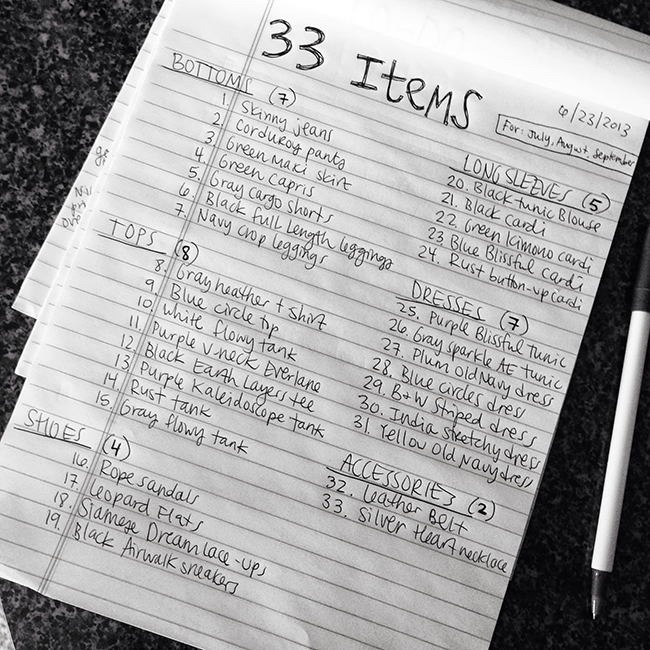 33 Items
6/23/2013
For: July, August, September
BOTTOMS (7)
1. Skinny jeans
2. Corduroy pants
3. Green Maxi skirt
4. Green capris
5. Gray cargo shorts
6. Black full length leggings
7. Navy crop leggings
TOPS (8)
8. Gray heather t shirt
9. Blue circle top
10. White flowy tank
11. Purple V-neck Everlane
12. Black Earth Layers tee
13. Purple Kaleidoscope tank
14. Rust tank
15. Gray flowy tank
SHOES (4)
16. Rope sandals
17. Leopard Flats
18. Siamese Dream lace-ups
19. Black Airwalk sneakers
LONG SLEEVES (5)
20. Black tunic Blouse
21. Black Cardi
22. Green kimono cardi
23 Blue Blissful cardi
24. Rust button-up cardi
DRESSES (7)
25. Purple Blissful tunic
26. Gray sparkle AE tunic
27. Plum Old Navy dress
28. Blue circles dress
29. B+W Striped dress
30. India sketchy dress
31 Yellow Old Navy dress
ACCESSORIES (2)
32. Leather Belt
33. Silver Heart necklace